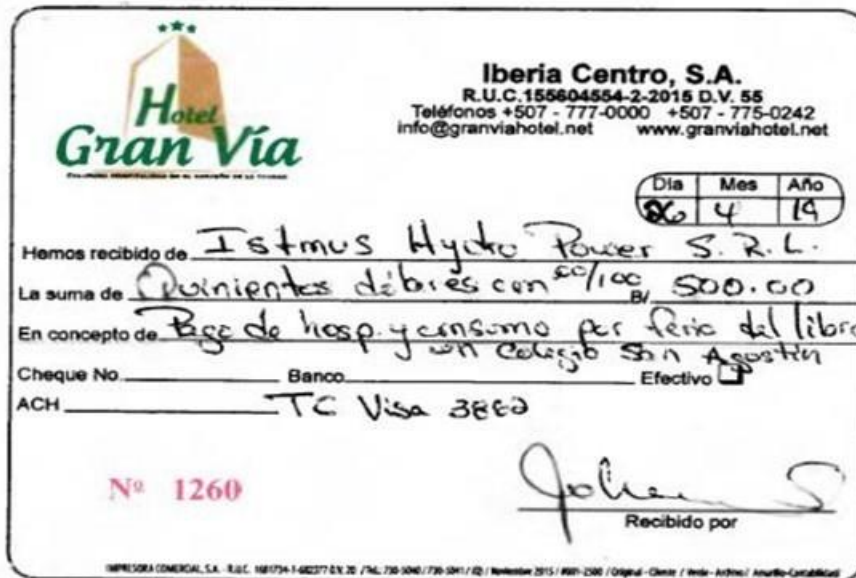 Hotel
Gran Vía
Iberia Centro, S.A.
R.U.C.155604554-2-2015 D.V. 55
Teléfonos +507 - 777-0000 +507 - 775-0242
info@granviahotel.net www.granviahotel.net
Día Mes Año
26 4 19
Hemos recibido de Istmus Hydro Power S.R.L.
La suma de Quinientos dólares con 00/100 B/ 500.00
En concepto de Pago de hosp. y consumo por feria del libro
en Colegio San Agustín
Cheque No. Banco Efectivo
ACH TC Visa 3882
Nº 1260
Recibido por
IMPRESORA COMERCIAL, S.A. - R.U.C. / Noviembre 2015 / Original - Cliente / Verde - Archivo / Amarillo-Contabilidad